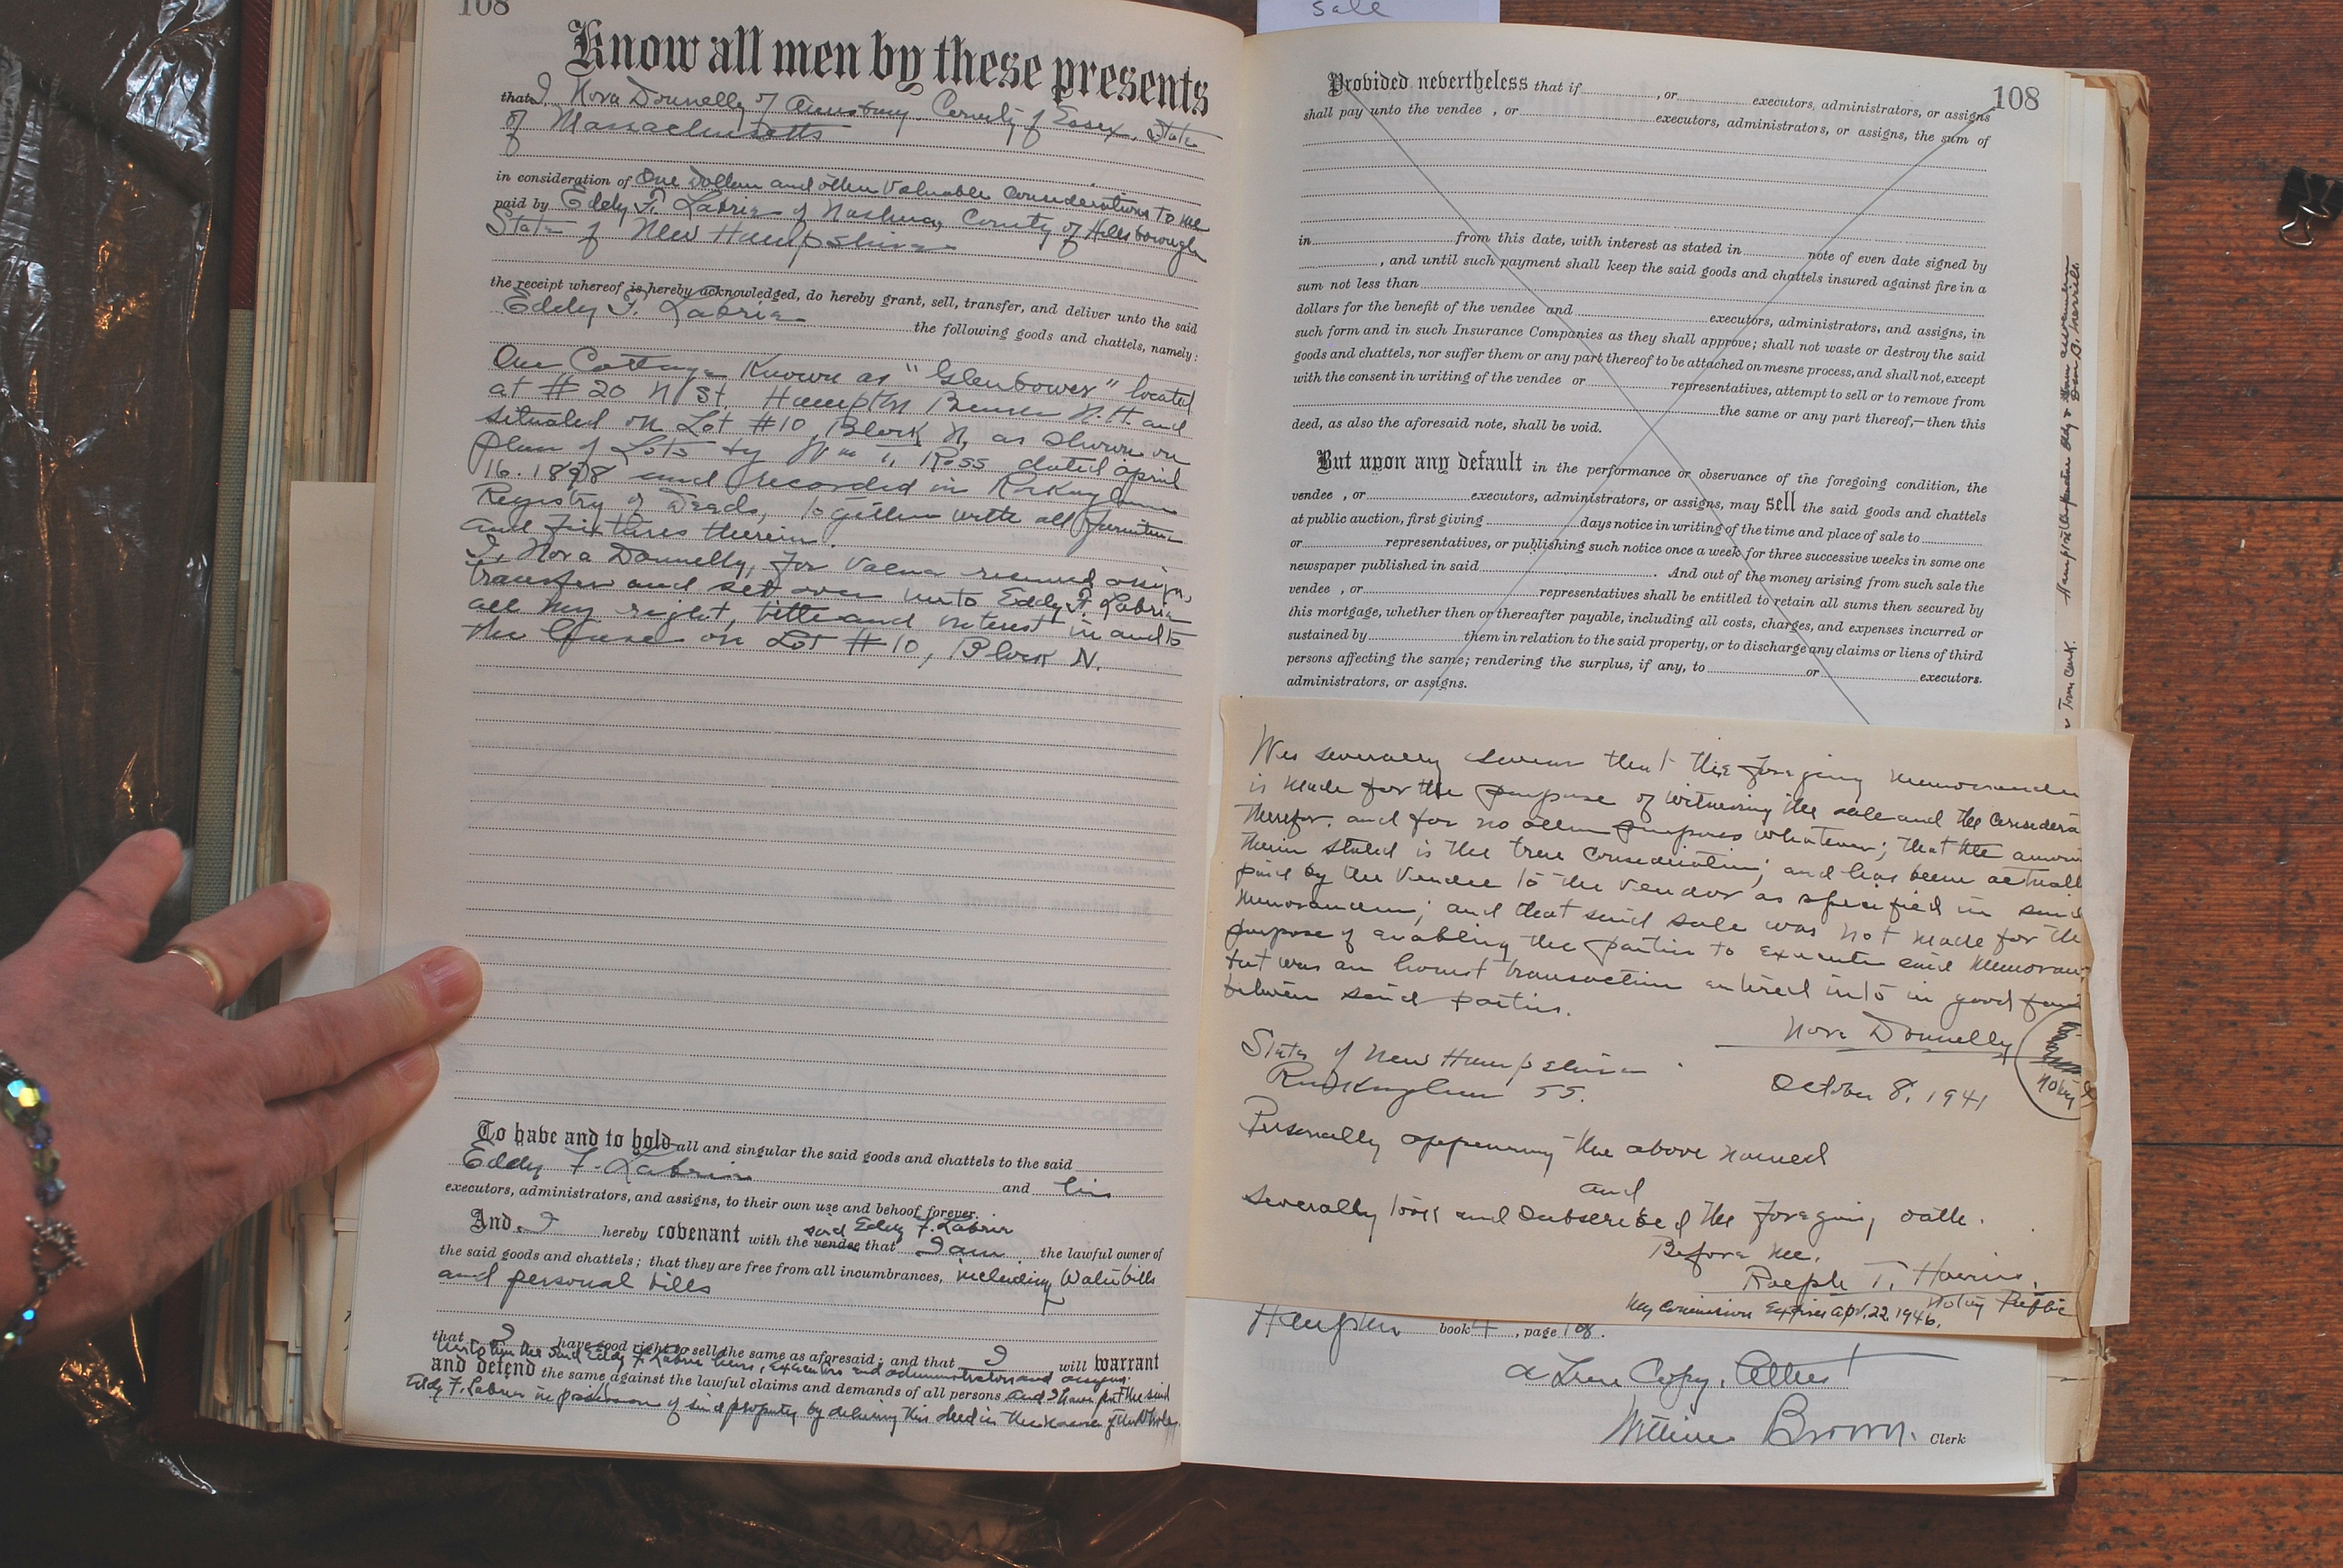 108
Know all men by these presents
that I, Nora Donnelly of Amesbury, County of Essex, State
of Massachusetts
in consideration of One Dollar and other valuable considerations to me
paid by Eddy F. Labrie of Nashua, County of Hillsborough
State of New Hampshire
the receipt whereof is hereby acknowledged, do hereby grant, sell, transfer, and deliver unto the said
Eddy F. Labrie the following goods and chattels, namely:
One Cottage Known as "Glenbower" located
at # 20 N St. Hampton Beach N.H. and
situated on Lot #10, Block N, as shown on
plan of Lots by Wm T. Ross dated april
16. 1898 and recorded in Rockingham
Registry of Deeds, together with all furniture
and fixtures therein.
I, Nora Donnelly, for value received assign,
transfer and set over unto Eddy F. Labrie
all my right, title and interest in and to
the house on Lot #10, Block N.
To have and to hold all and singular the said goods and chattels to the said
Eddy F. Labrie and his
executors, administrators, and assigns, to their own use and behoof forever.
And I hereby covenant with the vendee that I am the lawful owner of
said Eddy F. Labrie
the said goods and chattels; that they are free from all incumbrances, including Water bills
and personal bills
that I have good right to sell the same as aforesaid; and that I will warrant
unto him the said Eddy F. Labrie heirs, executors and administrators and assigns
and defend the same against the lawful claims and demands of all persons and I have put the said
Eddy F. Labrie in possession of said property by delivering this deed in the name of the whole.
sale
108
Provided nevertheless that if , or executors, administrators, or assigns
shall pay unto the vendee , or executors, administrators, or assigns, the sum of
in from this date, with interest as stated in note of even date signed by
, and until such payment shall keep the said goods and chattels insured against fire in a
sum not less than
dollars for the benefit of the vendee and executors, administrators, and assigns, in
such form and in such Insurance Companies as they shall approve; shall not waste or destroy the said
goods and chattels, nor suffer them or any part thereof to be attached on mesne process, and shall not, except
with the consent in writing of the vendee or representatives, attempt to sell or to remove from
the same or any part thereof,—then this
deed, as also the aforesaid note, shall be void.
But upon any default in the performance or observance of the foregoing condition, the
vendee , or executors, administrators, or assigns, may sell the said goods and chattels
at public auction, first giving days notice in writing of the time and place of sale to
or representatives, or publishing such notice once a week for three successive weeks in some one
newspaper published in said . And out of the money arising from such sale the
vendee , or representatives shall be entitled to retain all sums then secured by
this mortgage, whether then or thereafter payable, including all costs, charges, and expenses incurred or
sustained by them in relation to the said property, or to discharge any claims or liens of third
persons affecting the same; rendering the surplus, if any, to or executors.
administrators, or assigns.
We severally swear that the foregoing memorandu
is made for the purpose of witnessing the sale and the considera
therefor, and for no other purpose whatever; that the amoun
therein stated is the true consideration; and has been actuall
paid by the vendee to the vendor as specified in said
memorandum; and that said sale was not made for the
purpose of enabling the parties to execute said memoran
but was an honest transaction entered into in good fai
between said parties.
Nora Donnelly
State of New Hampshire
October 8, 1941
Rockingham SS.
Personally appearing the above named
and
severally took and subscribed the foregoing oath.
Before me.
Ralph T. Harris,
Notary Public
My Commission Expires Apr. 22, 1946.
Hampton book 4, page 108.
a True Copy, Attest
William Brown. Clerk